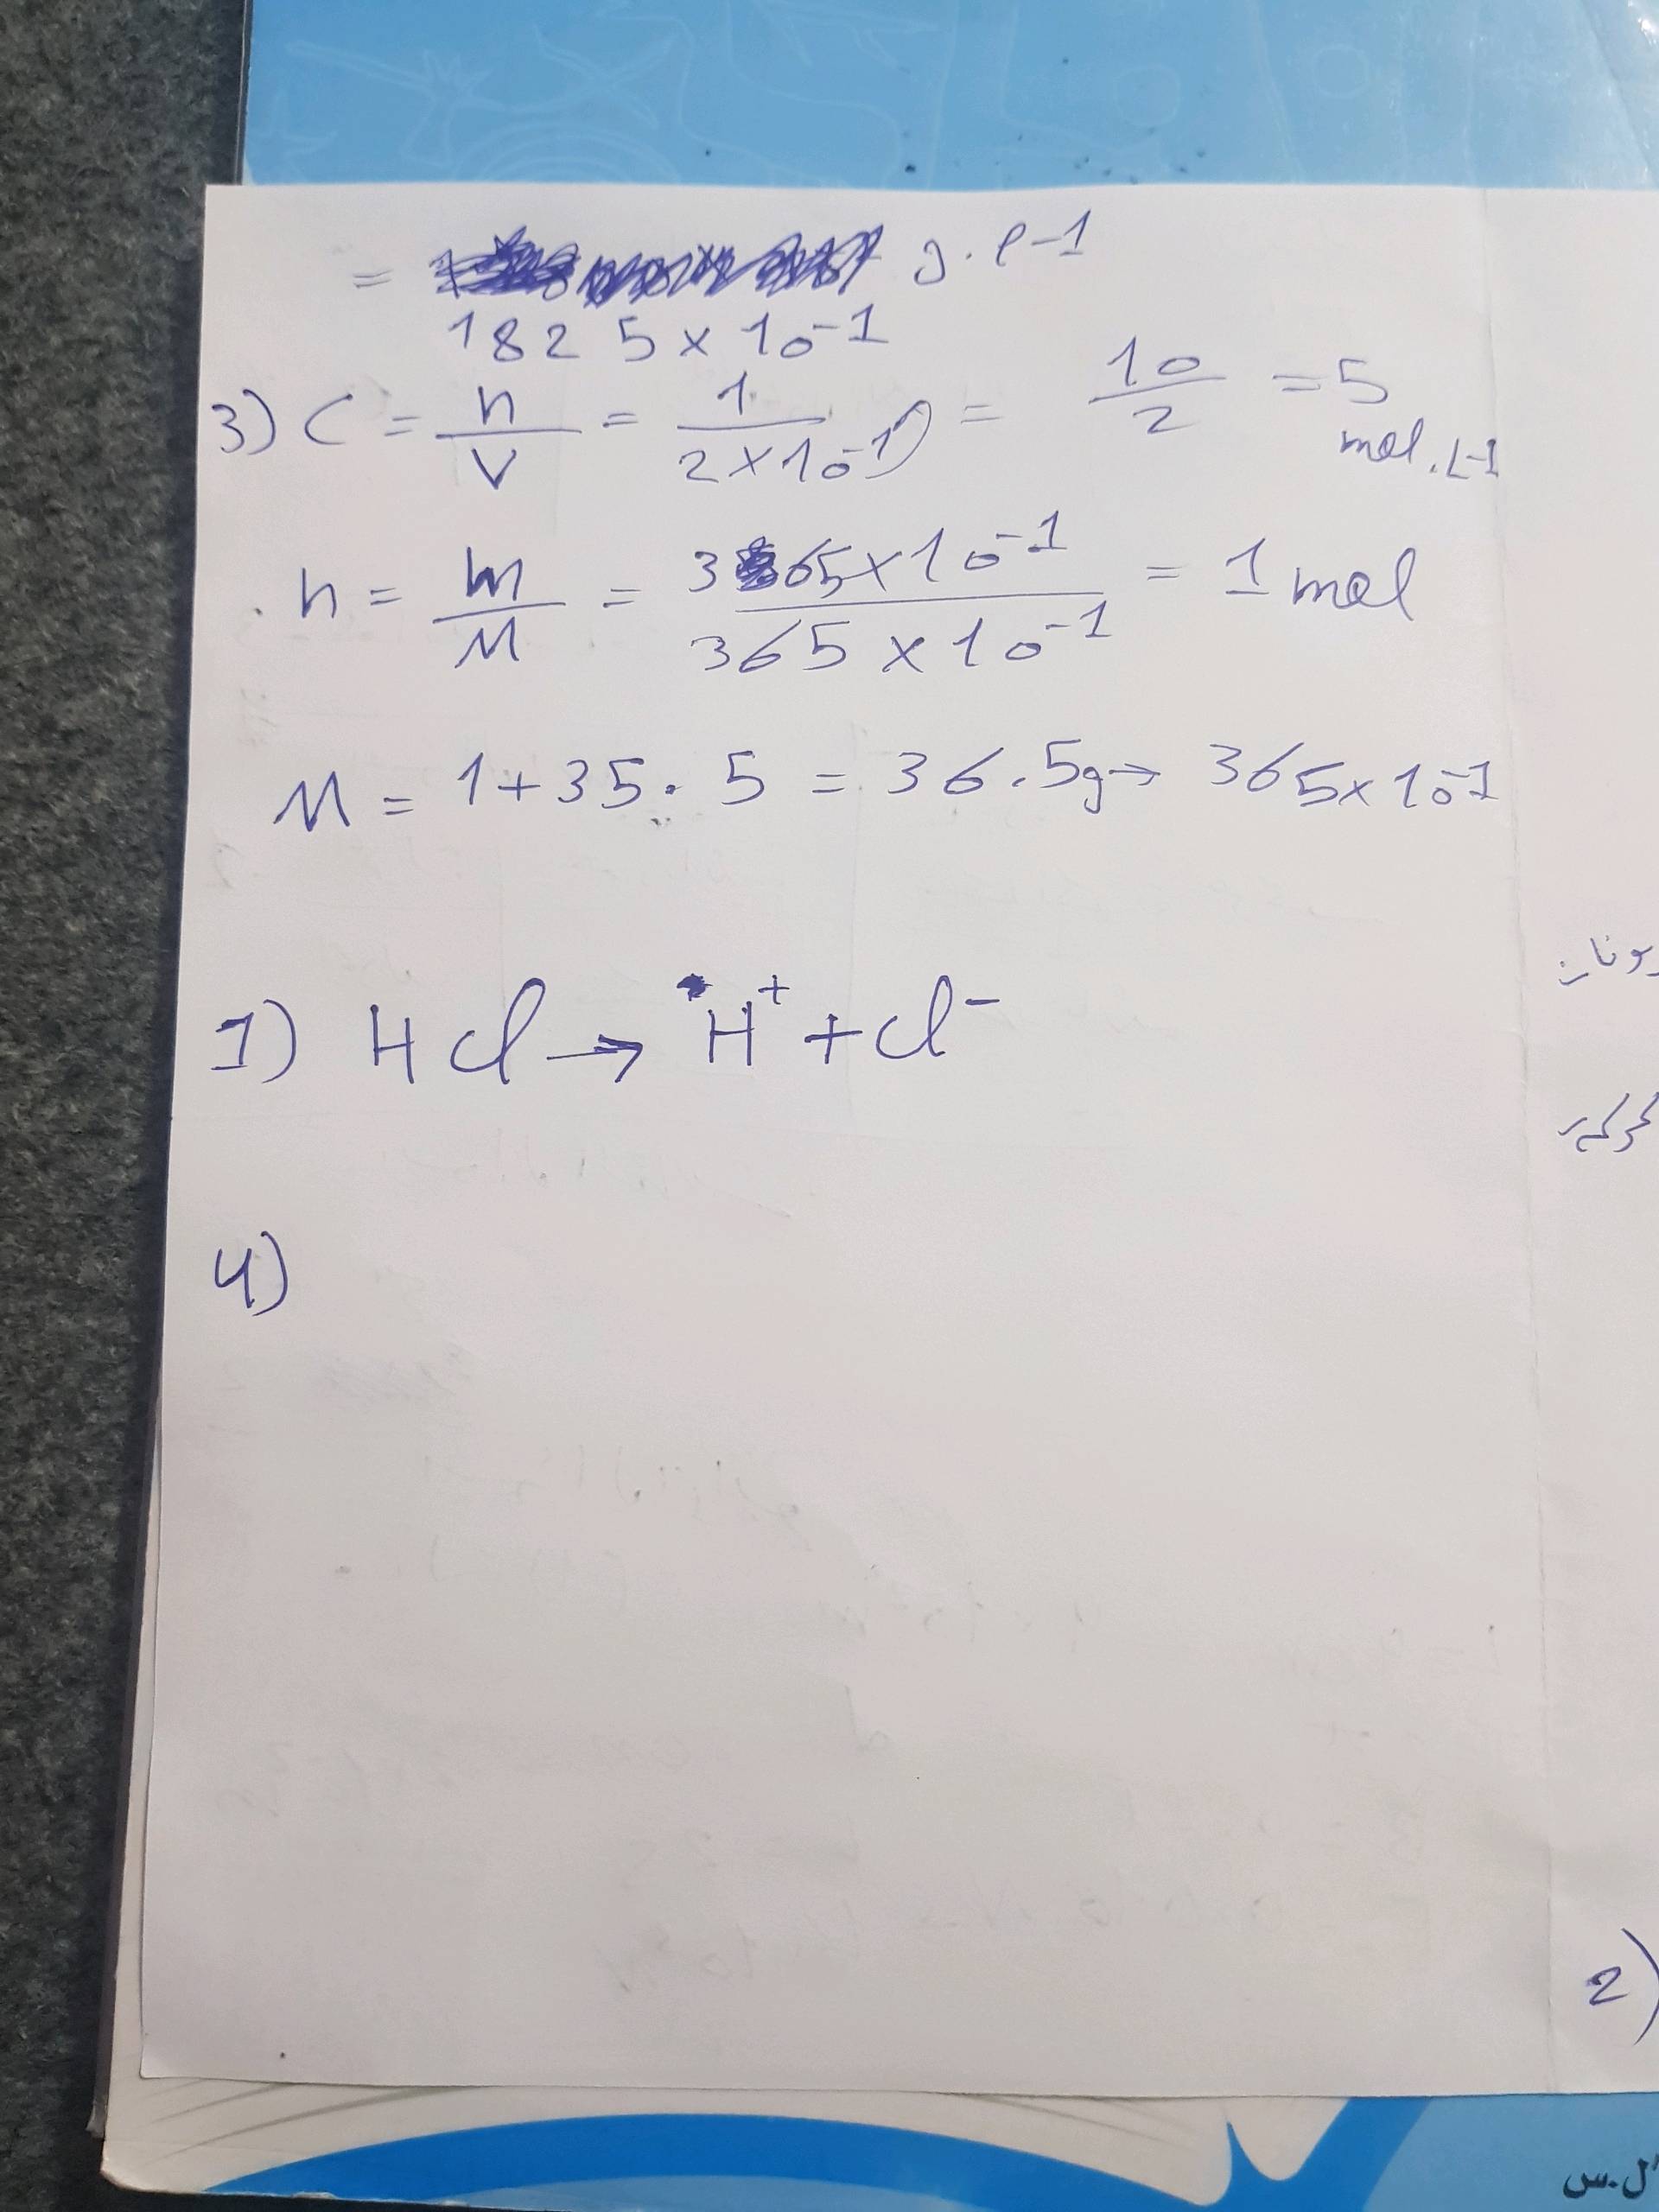 = g. l-1
1825 x 10-1
3) C = n/V = 1/(2x10-1) = 10/2 = 5 mol. L-1
n = m/M = 365x10-1/365 x 10-1 = 1 mol
M = 1+35.5 = 36.5g→ 365x10-1
1) HCl → H+ + Cl-
4)
2)
ل.س